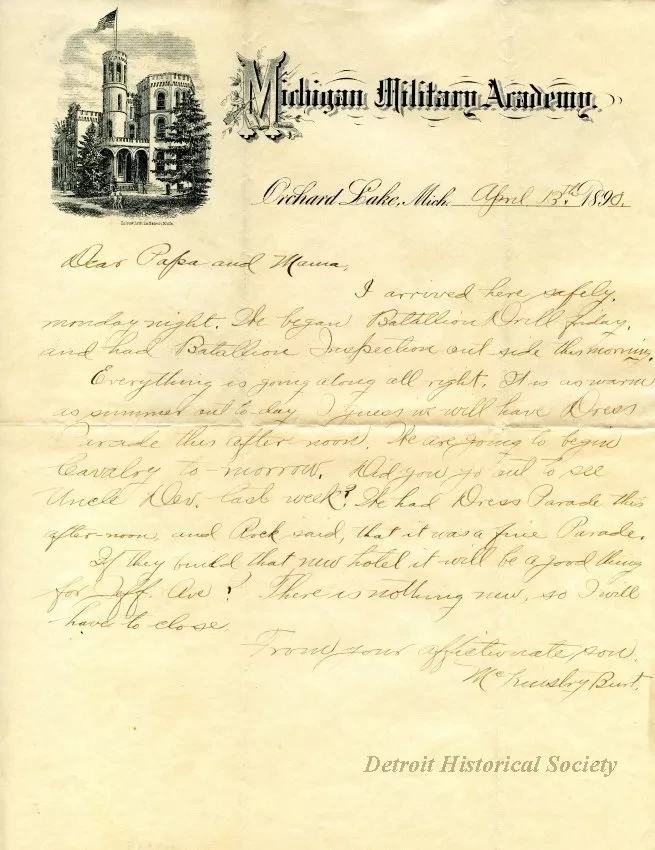 Michigan Military Academy.
Orchard Lake, Mich. April 13th. 1890.
Dear Papa and Mama,
I arrived here safely,
monday night. We began Batallion Drill friday,
and had Batallion Inspection out side this morning.
Everything is going along all right. It is as warm
as summer out to-day. I guess we will have Dress
Parade this after noon. We are going to begin
Cavalry to-morrow. Did you go out to see
Uncle Dev. last week? We had Dress Parade this
after-noon, and Rock said, that it was a fine Parade.
If they build that new hotel it will be a good thing
for Jeff. Ave! There is nothing new, so I will
have to close.
From your affictionate, son.
Burt.
Detroit Historical Society